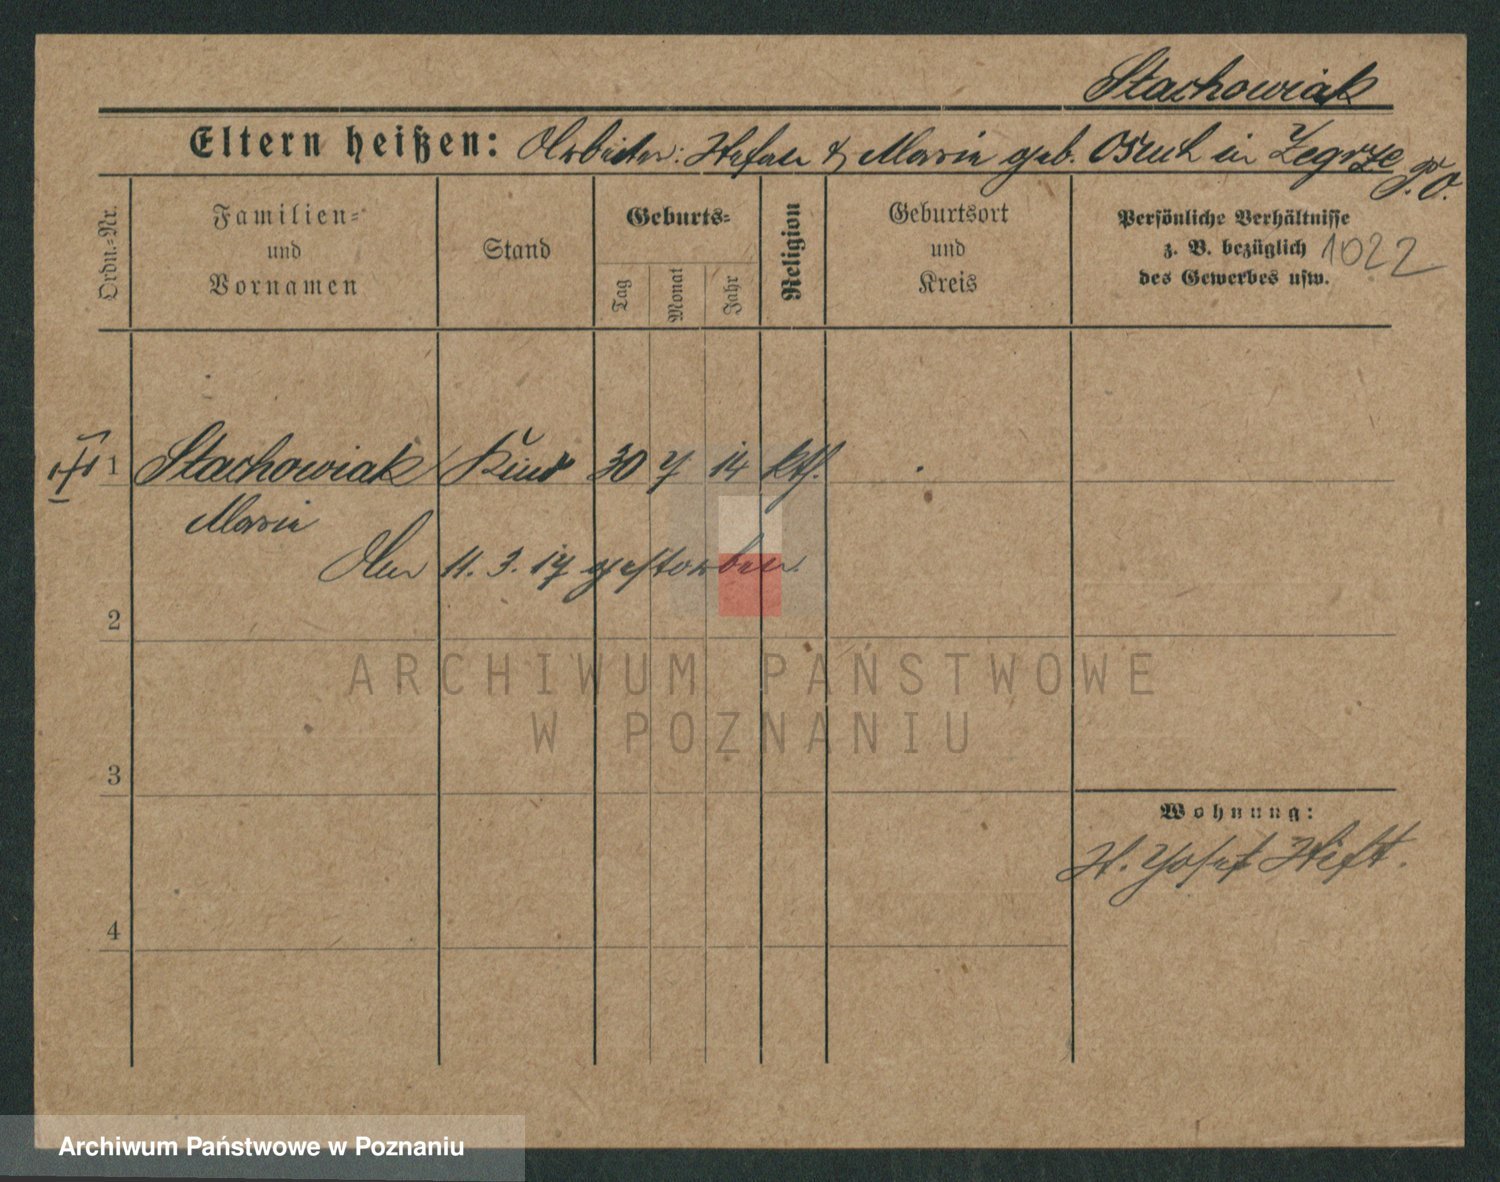 Stachowiak
Eltern heißen: Arbeiter: Stefan & Maria geb. in Zegrze P. O.
Ordn.-Nr.
Familien-
und
Vornamen
Stand
Geburts-
Tag
Monat
Jahr
Religion
Geburtsort
und
Kreis
Persönliche Verhältnisse
z. B. bezüglich
des Gewerbes usw.
1022
1 Stachowiak Kind 30 7 14 kth.
Maria
Am 11. 3. 17 gestorben.
2
ARCHIWUM PAŃSTWOWE
W POZNANIU
3
Wohnung:
St. Josef Stift.
4
Archiwum Państwowe w Poznaniu